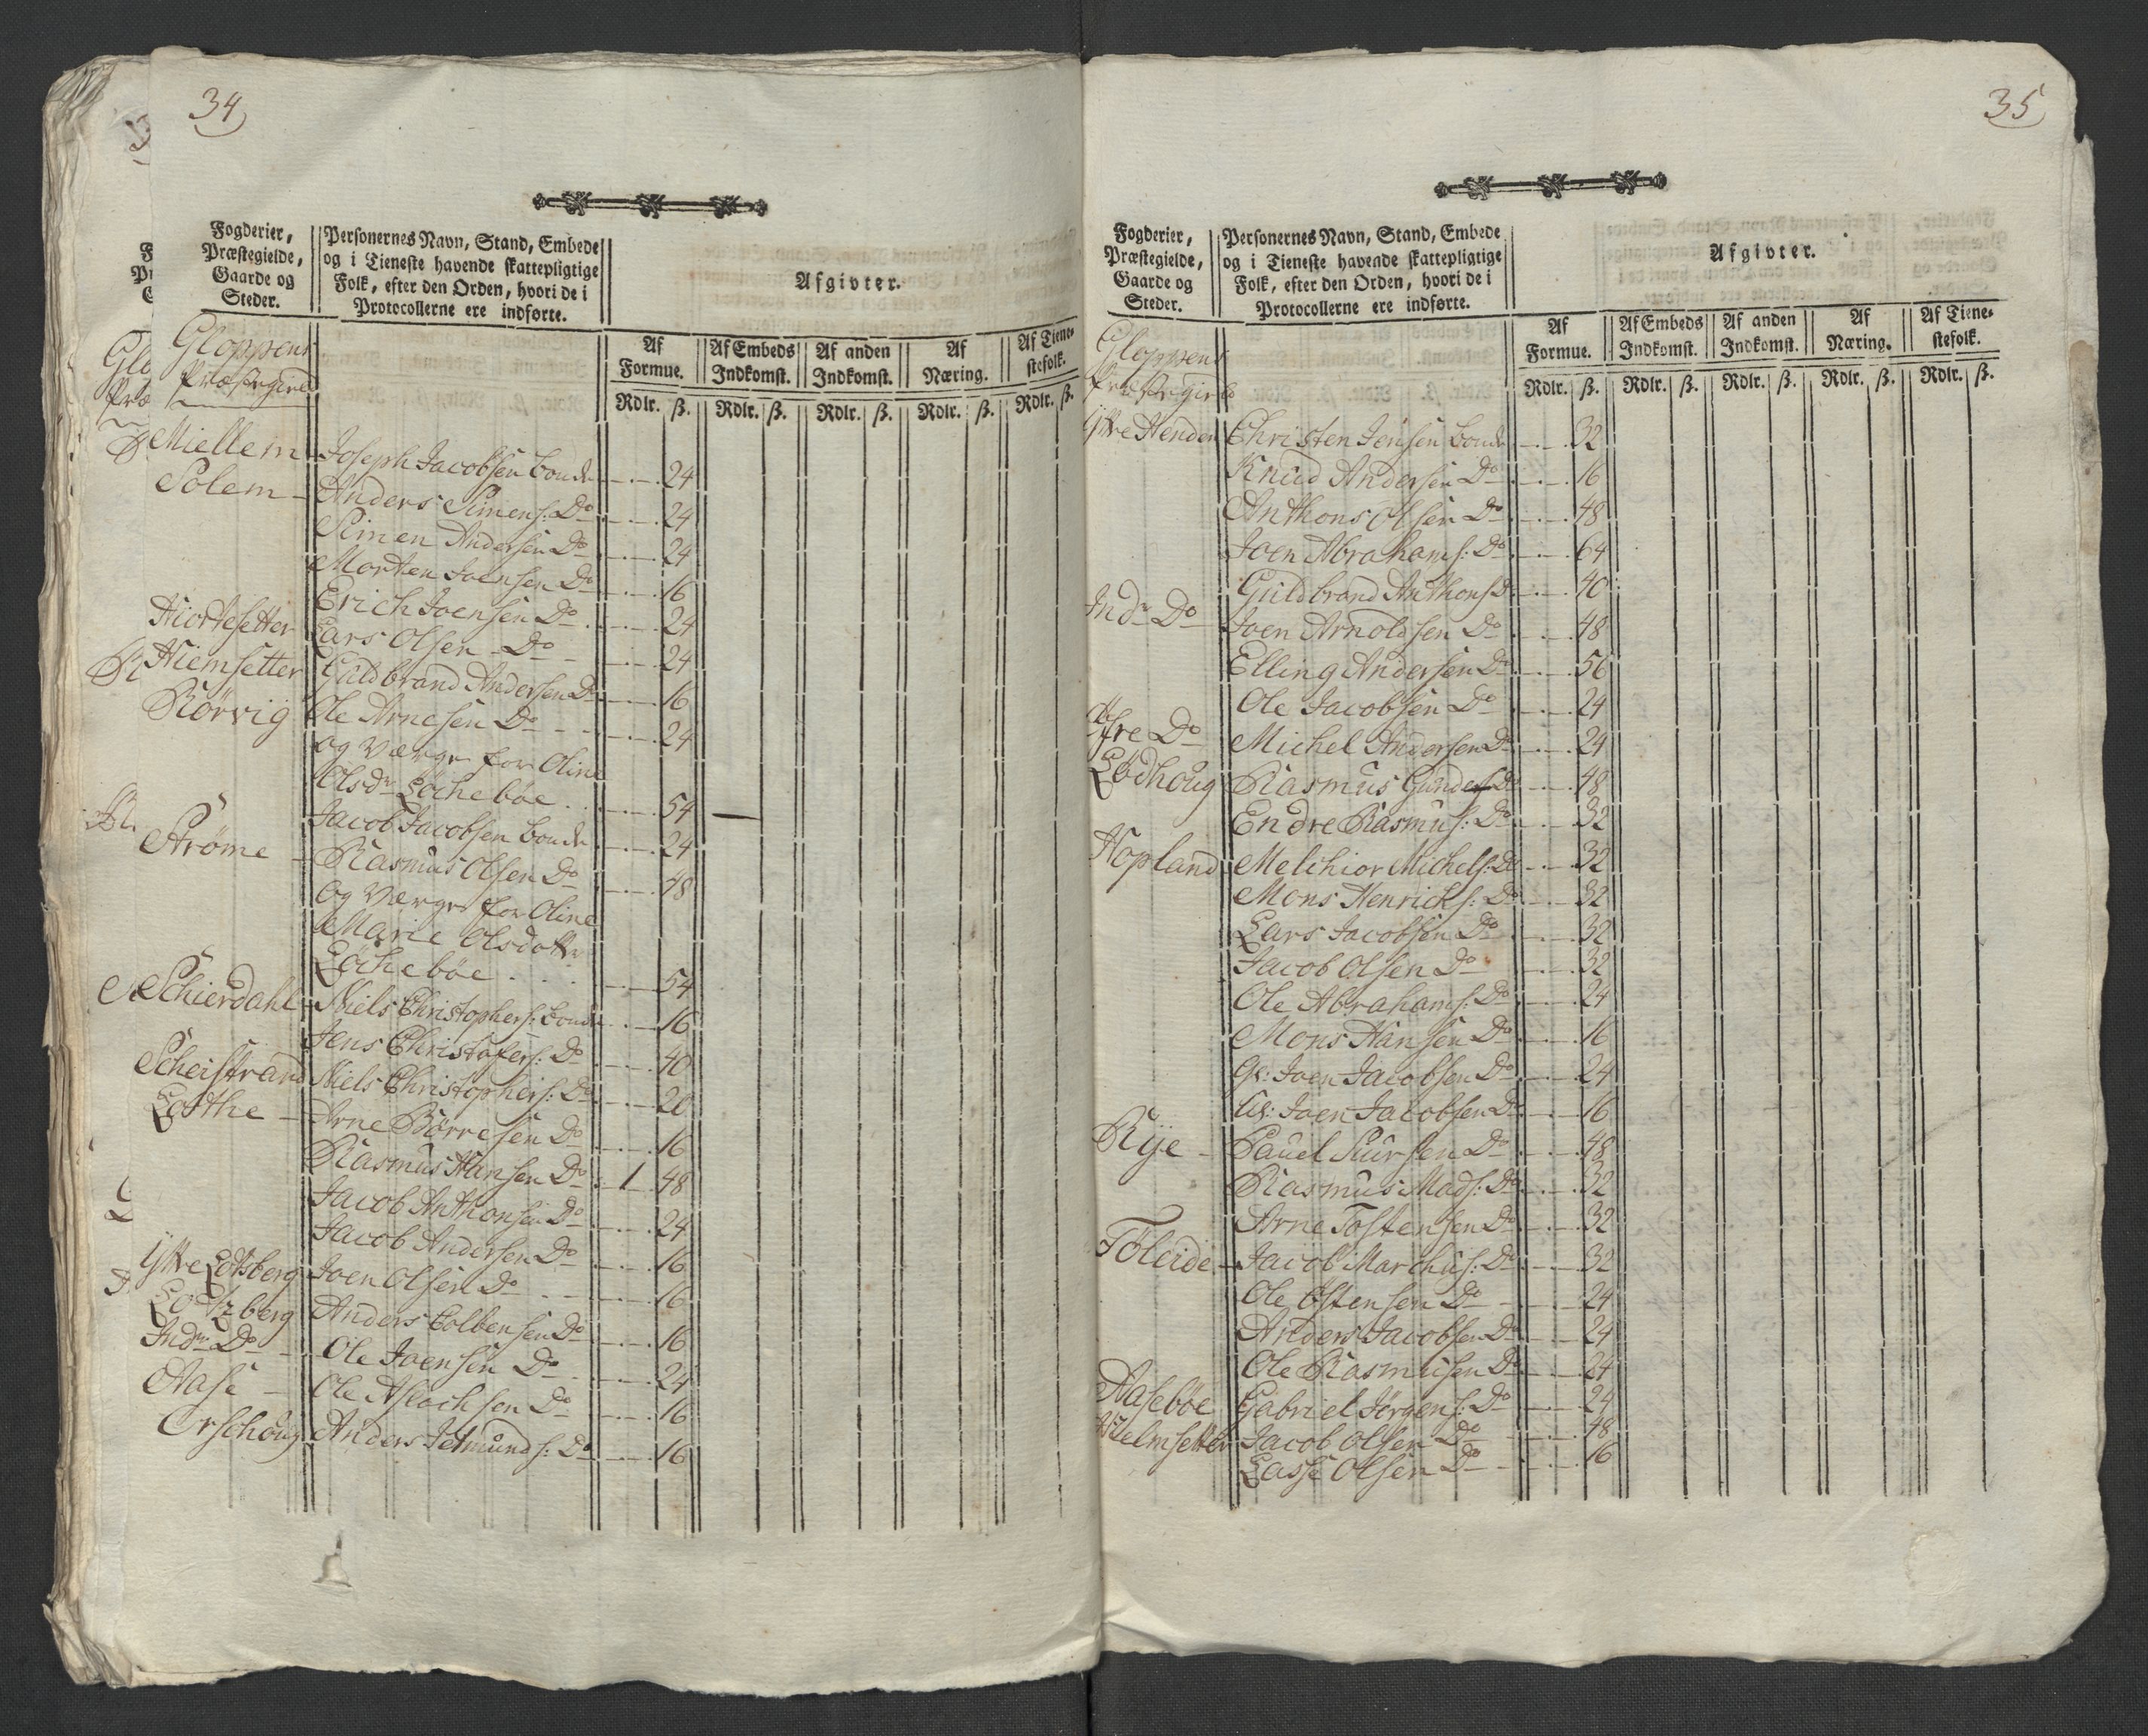 34
Fogderier,
Præstegielde,
Gaarde og
Steder.
Personernes Navn, Stand, Embede
og i Tieneste havende skattepligtige
Folk, efter den Orden, hvori de i
Protocollerne ere indførte.
Afgivter.
Af Formue. Af Embeds Indkomst. Af anden Indkomst. Af Næring. Af Tienestefolk.
Rdlr. ß. Rdlr. ß. Rdlr. ß. Rdlr. ß. Rdlr. ß.
Gloppens
Præstegield
Miellem Joseph Jacobsen bonde 24
Solem Anders Simens: Do 24
Simen Andersen Do 24
Morten Joensen Do 16
Erich Joensen Do 24
Hiortesetter Lars Olsen Do 24
Hiemsetter Guldbrand Andersen Do 16
Rørvig Ole Arnesen Do 24
og Værge for Oline
Olsdr Løchebøe 54
Jacob Jacobsen bonde 24
Strøme Rasmus Olsen Do 48
og Værge for Oline
Marie Olsdotter
Løchebøe 54
Schierdahl Niels Christophers: bonde 16
Jens Christofers: Do 40
Scheistrand Niels Christophers: Do 20
Lothe Arne Børresen Do 16
Rasmus Hansen Do 1 48
Jacob Anthonsen Do 24
Jacob Andersen Do 16
Ytre Lotsberg Joen Olsen Do 16
Lodtzberg Anders Colbensen Do 16
Indr Do Ole Joensen Do 24
Aase Ole Aslachsen Do 16
Orschoug Anders Jetmunds: Do 16
35
Fogderier,
Præstegielde,
Gaarde og
Steder.
Personernes Navn, Stand, Embede
og i Tieneste havende skattepligtige
Folk, efter den Orden, hvori de i
Protocollerne ere indførte.
Afgivter.
Af Formue. Af Embeds Indkomst. Af anden Indkomst. Af Næring. Af Tienestefolk.
Rdlr. ß. Rdlr. ß. Rdlr. ß. Rdlr. ß. Rdlr. ß.
Gloppens
Præstegield
Ytre Henden Christen Jensen bonde 32
Knud Andersen Do 16
Anthons Olsen Do 48
Joen Abrahams: Do 64
Guldbrand Anthons Do 40
Indr Do Joen Arnoldsen Do 48
Elling Andersen Do 56
Ole Jacobsen Do 24
Do Michel Andersen Do 24
Lødhoug Rasmus Gunders Do 48
Endre Rasmus: Do 32
Hopland Melchior Michels: Do 32
Mons Henrichs: Do 32
Lars Jacobsen Do 32
Jacob Olsen Do 32
Ole Abrahams: Do 24
Mons Hansen Do 16
Gl: Joen Jacobsen Do 24
Joen Jacobsen Do 16
Rye Pauel Siursen Do 48
Rasmus Mads: Do 32
Arne Tostensen Do 32
Føleide Jacob Marchus: Do 32
Ole Østensen Do 24
Anders Jacobsen Do 24
Ole Rasmusen Do 24
Aasebøe Gabriel Jørgens: Do 24
Jacob Olsen Do 48
Lasse Olsen Do 16